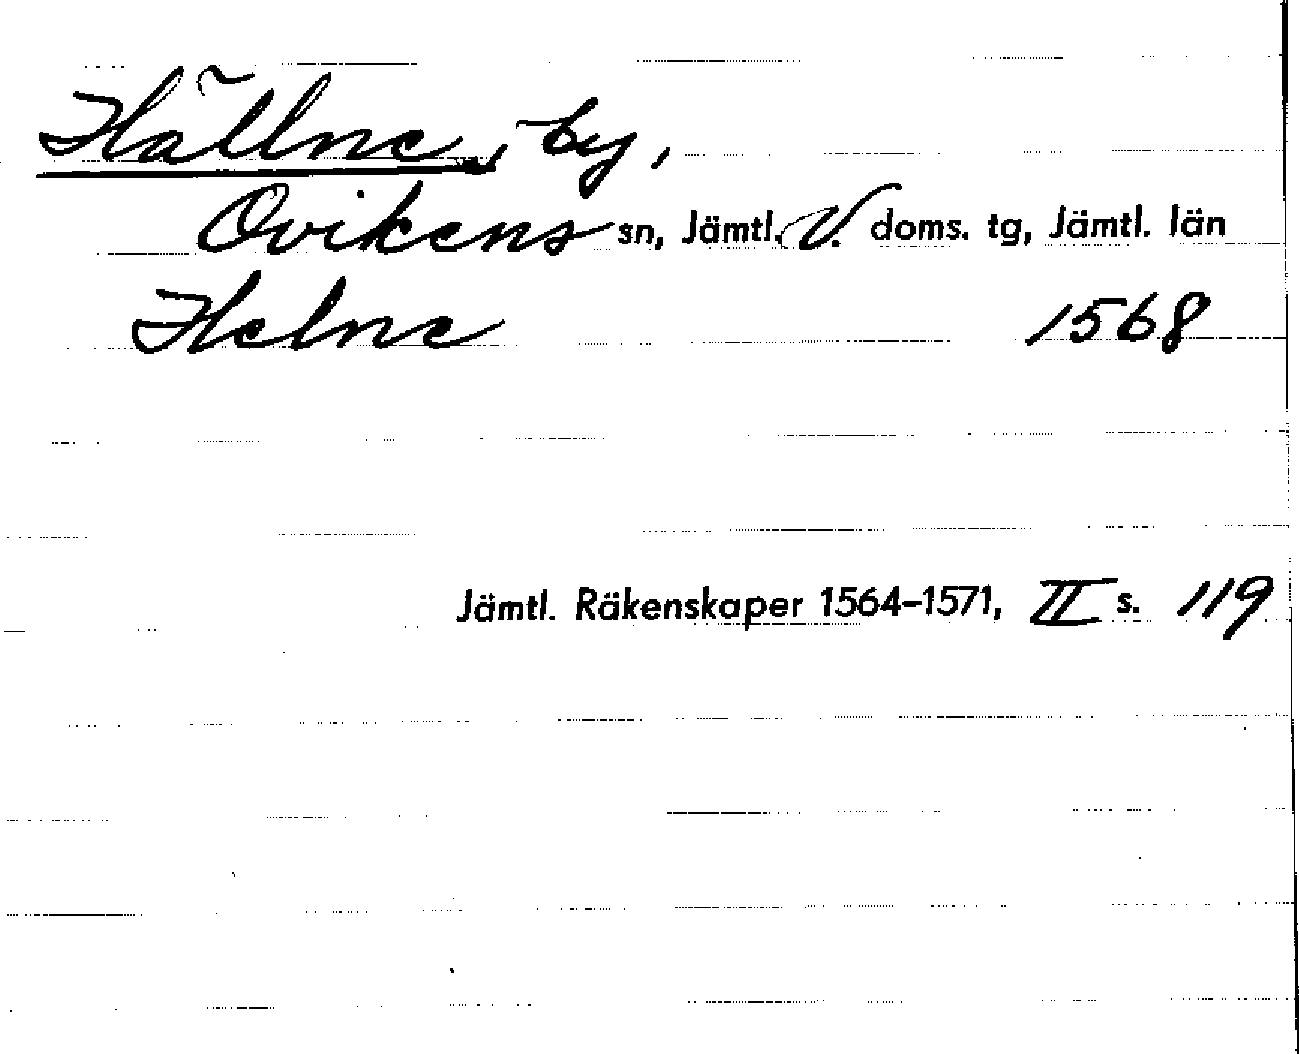 Hällne, by,
Ovikens sn, Jämtl. V. doms. tg, Jämtl. län
Helne 1568
Jämtl. Räkenskaper 1564–1571, II s. 119